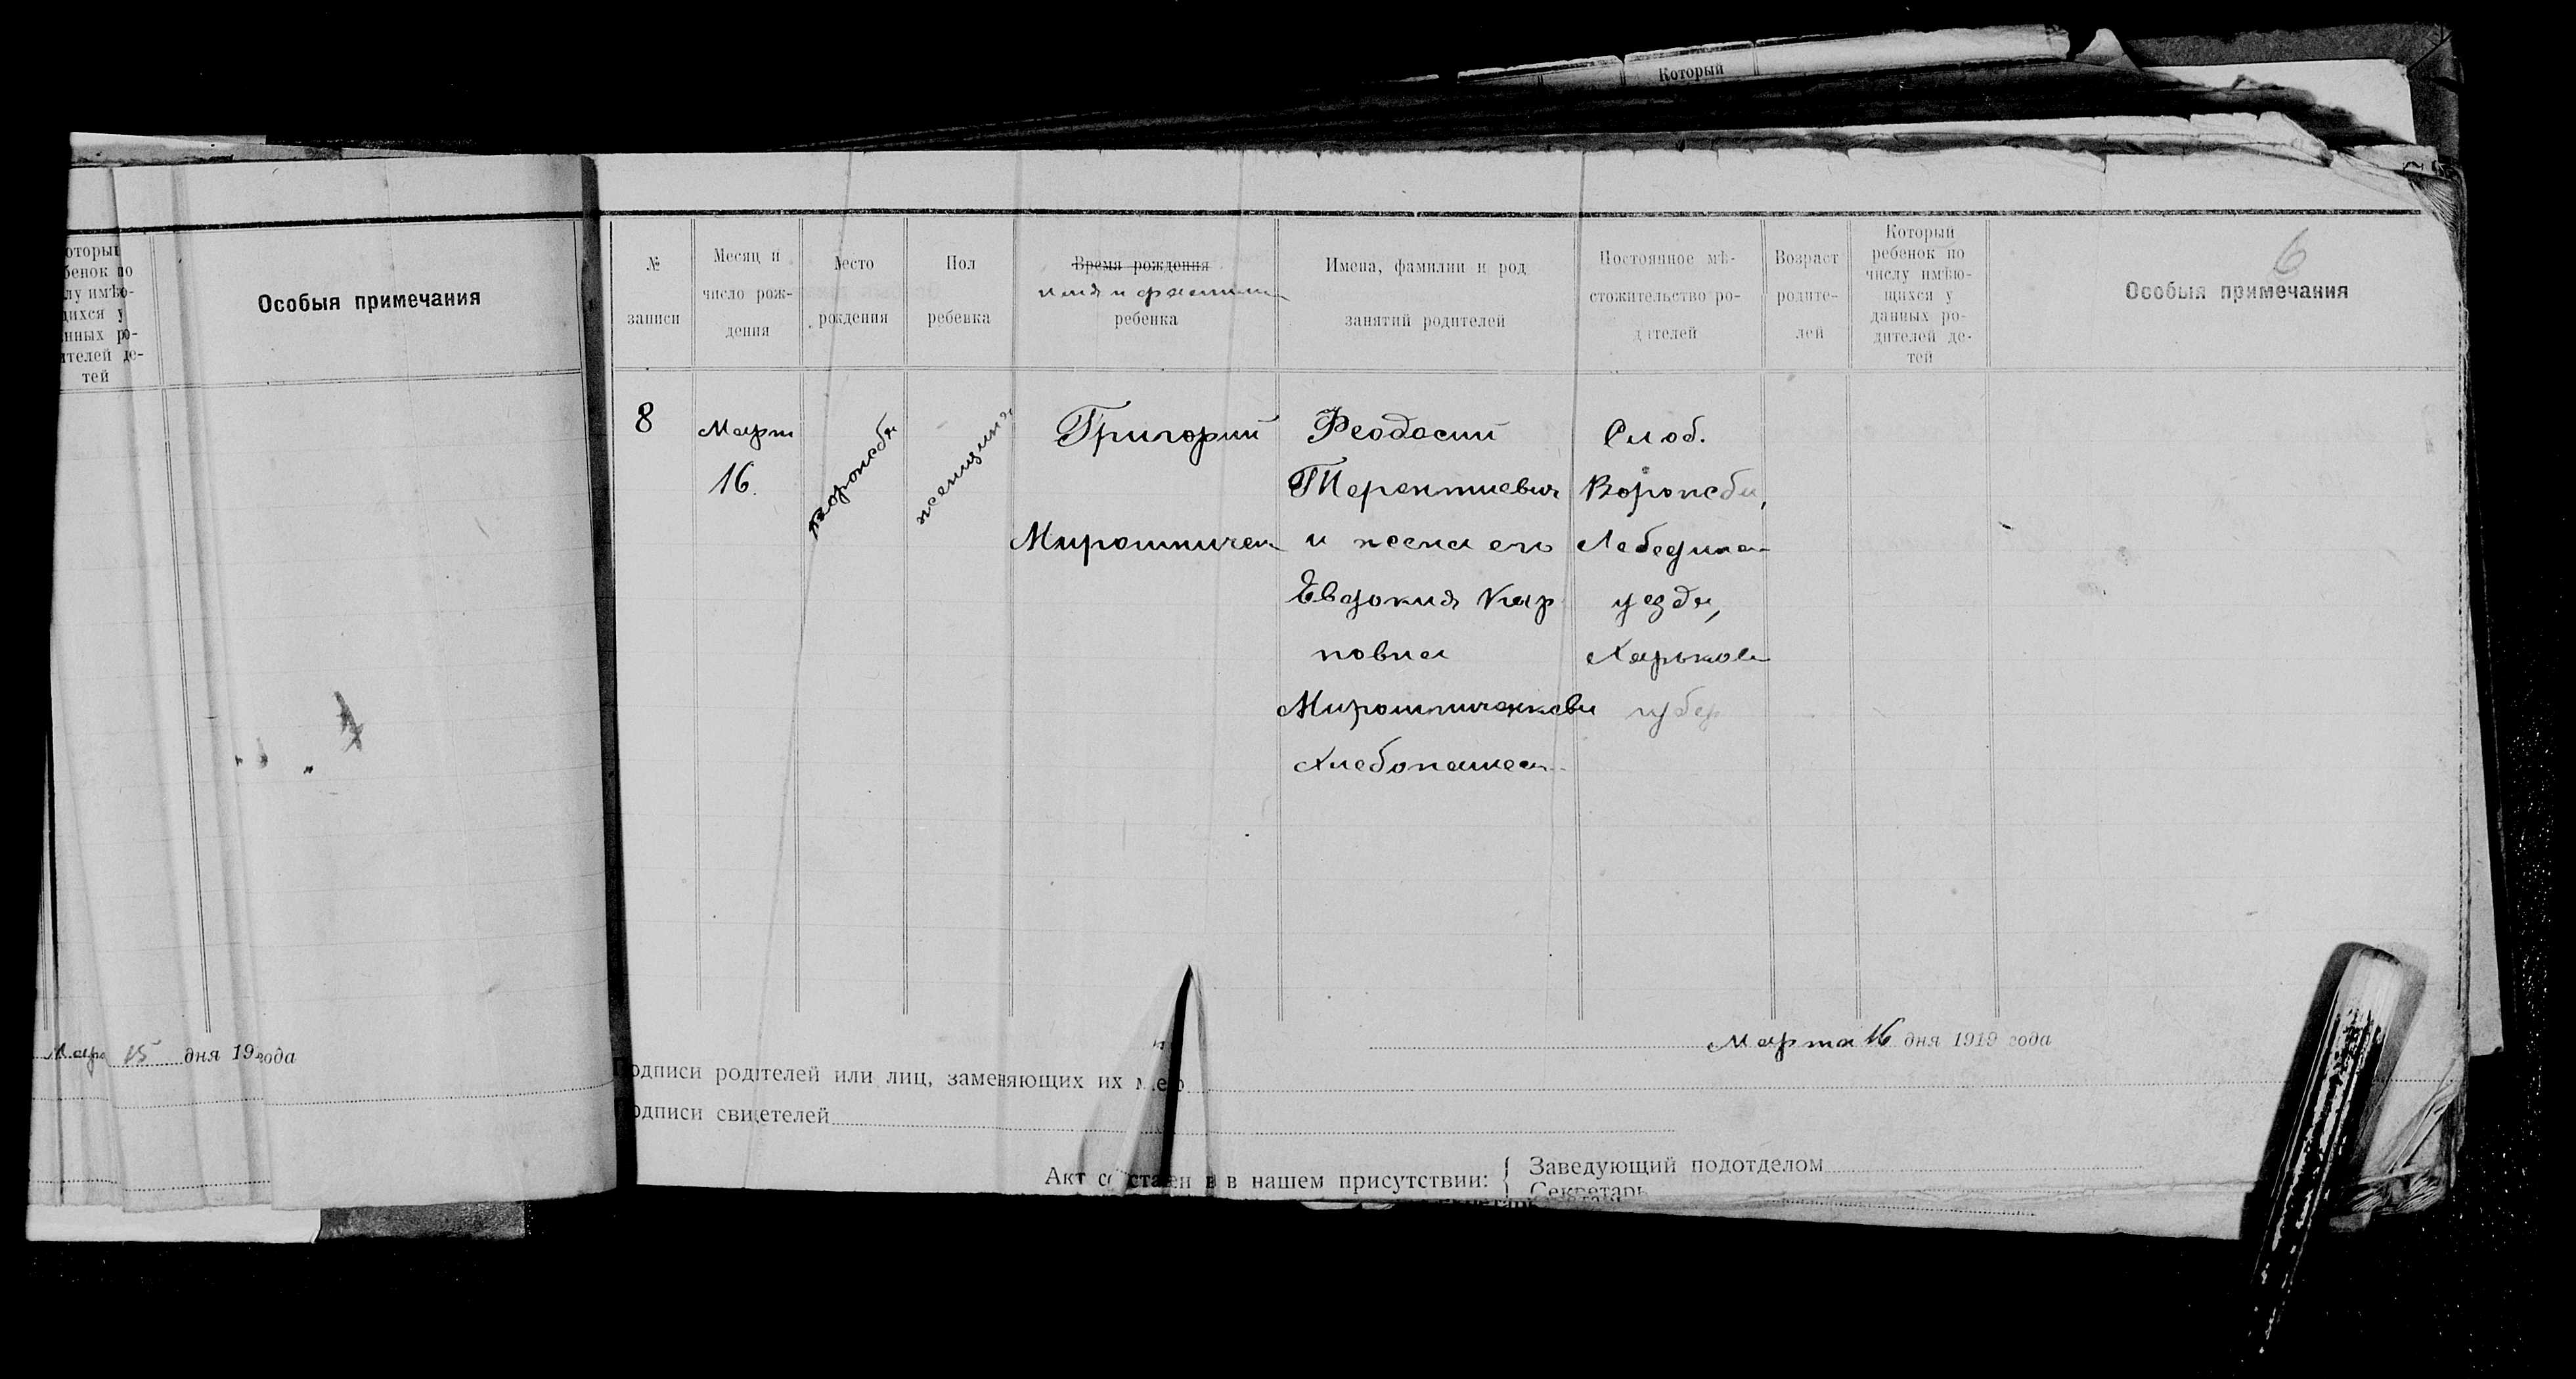 Который
оторый
бенок по
лу имѣю-
щихся у
нных ро-
ителей де-
тей
Особыя примечания
15 дня 19 года
6
№
записи
Месяц и
число рож-
дения
Место
рождения
Пол
ребенка
Время рождения
имя и фамилия
ребенка
Имена, фамилии и род
занятий родителей
Постоянное мѣ-
стожительство ро-
дителей
Возраст
родите-
лей
Который
ребенок по
числу имѣю-
щихся у
данных ро-
дителей де-
тей
Особыя примечания
8
Март
16.
Ворожба
женщина
Григорий
Мирошничен
Феодосий
Терентиевич
и жена его
Евдокия Кар
повна
Мирошниченковы
Хлебопашес
Слоб.
Ворожбы,
Лебедин
уезда,
Харьков
губер
Марта 16 дня 1919 года
одписи родителей или лиц, заменяющих их
одписи свидетелей
Акт составлен в нашем присутствии:
Заведующий подотделом
Секретарь